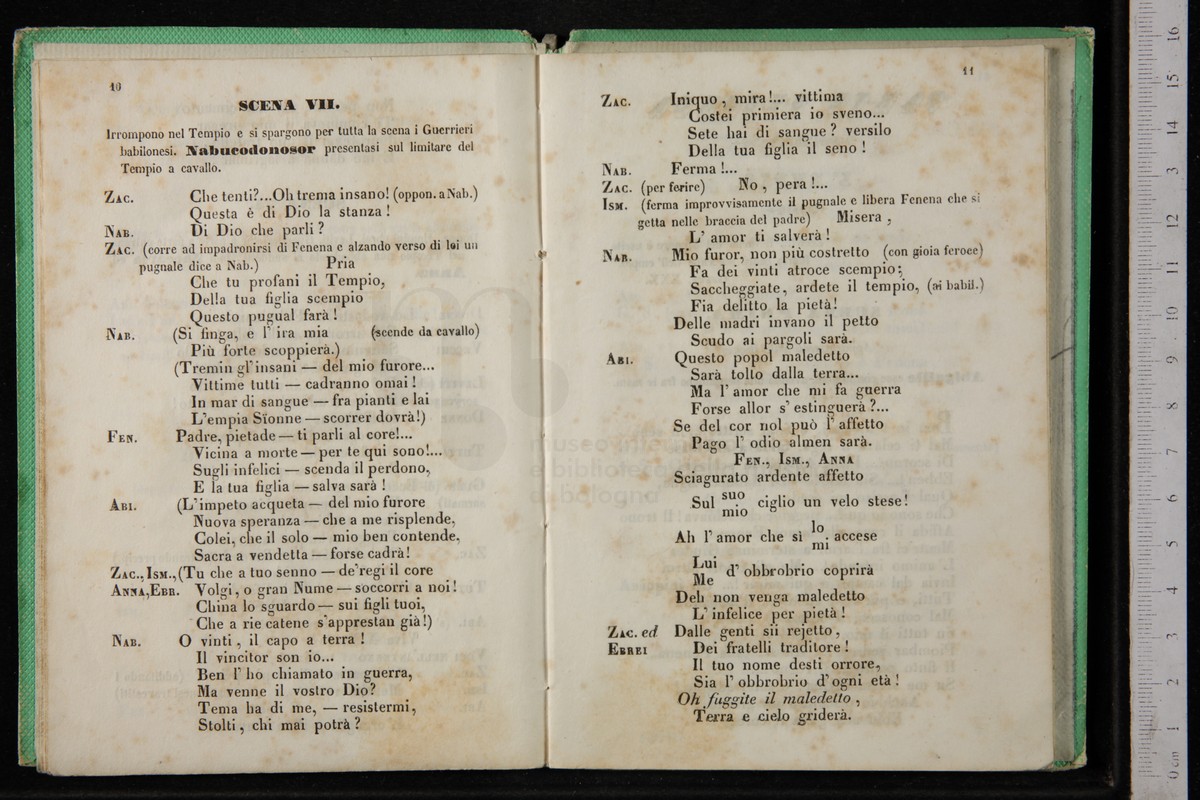 10
SCENA VII.
Irrompono nel Tempio e si spargono per tutta la scena i Guerrieri
babilonesi. Nabucodonosor presentasi sul limitare del
Tempio a cavallo.
ZAC. Che tenti?...Oh trema insano! (oppon. a Nab.)
Questa è di Dio la stanza!
NAB. Di Dio che parli?
ZAC. (corre ad impadronirsi di Fenena e alzando verso di lei un
pugnale dice a Nab.) Pria
Che tu profani il Tempio,
Della tua figlia scempio
Questo pugual farà!
NAB. (Si finga, e l' ira mia (scende da cavallo)
Più forte scoppierà.)
(Tremin gl'insani — del mio furore...
Vittime tutti — cadranno omai!
In mar di sangue — fra pianti e lai
L'empia Sïonne — scorrer dovrà!)
FEN. Padre, pietade — ti parli al core!...
Vicina a morte — per te qui sono!...
Sugli infelici — scenda il perdono,
E la tua figlia — salva sarà!
ABI. (L'impeto acqueta — del mio furore
Nuova speranza — che a me risplende,
Colei, che il solo — mio ben contende,
Sacra a vendetta — forse cadrà!
ZAC., ISM., (Tu che a tuo senno — de'regi il core
ANNA, EBR. Volgi, o gran Nume — soccorri a noi!
China lo sguardo — sui figli tuoi,
Che a rie catene s'apprestan già!)
NAB. O vinti, il capo a terra!
Il vincitor son io...
Ben l' ho chiamato in guerra,
Ma venne il vostro Dio?
Tema ha di me, — resistermi,
Stolti, chi mai potrà?
11
ZAC. Iniquo, mira!... vittima
Costei primiera io sveno...
Sete hai di sangue? versilo
Della tua figlia il seno!
NAB. Ferma!...
ZAC. (per ferire) No, pera!...
ISM. (ferma improvvisamente il pugnale e libera Fenena che si
getta nelle braccia del padre) Misera,
L' amor ti salverà!
NAB. Mio furor, non più costretto (con gioia feroce)
Fa dei vinti atroce scempio;
Saccheggiate, ardete il tempio, (ai babil.)
Fia delitto la pietà!
Delle madri invano il petto
Scudo ai pargoli sarà.
ABI. Questo popol maledetto
Sarà tolto dalla terra...
Ma l' amor che mi fa guerra
Forse allor s' estinguerà?...
Se del cor nol può l' affetto
Pago l' odio almen sarà.
FEN., ISM., ANNA
Sciagurato ardente affetto
Sul suo ciglio un velo stese!
mio
Ah l' amor che sì lo accese
mi
Lui d' obbrobrio coprirà
Me
Deh non venga maledetto
L' infelice per pietà!
ZAC. ed Dalle genti sii rejetto,
EBREI Dei fratelli traditore!
Il tuo nome desti orrore,
Sia l' obbrobrio d' ogni età!
Oh fuggite il maledetto,
Terra e cielo griderà.
museo
e biblioteca
di bologna
0 cm 1 2 3 4 5 6 7 8 9 10 11 12 13 14 15 16